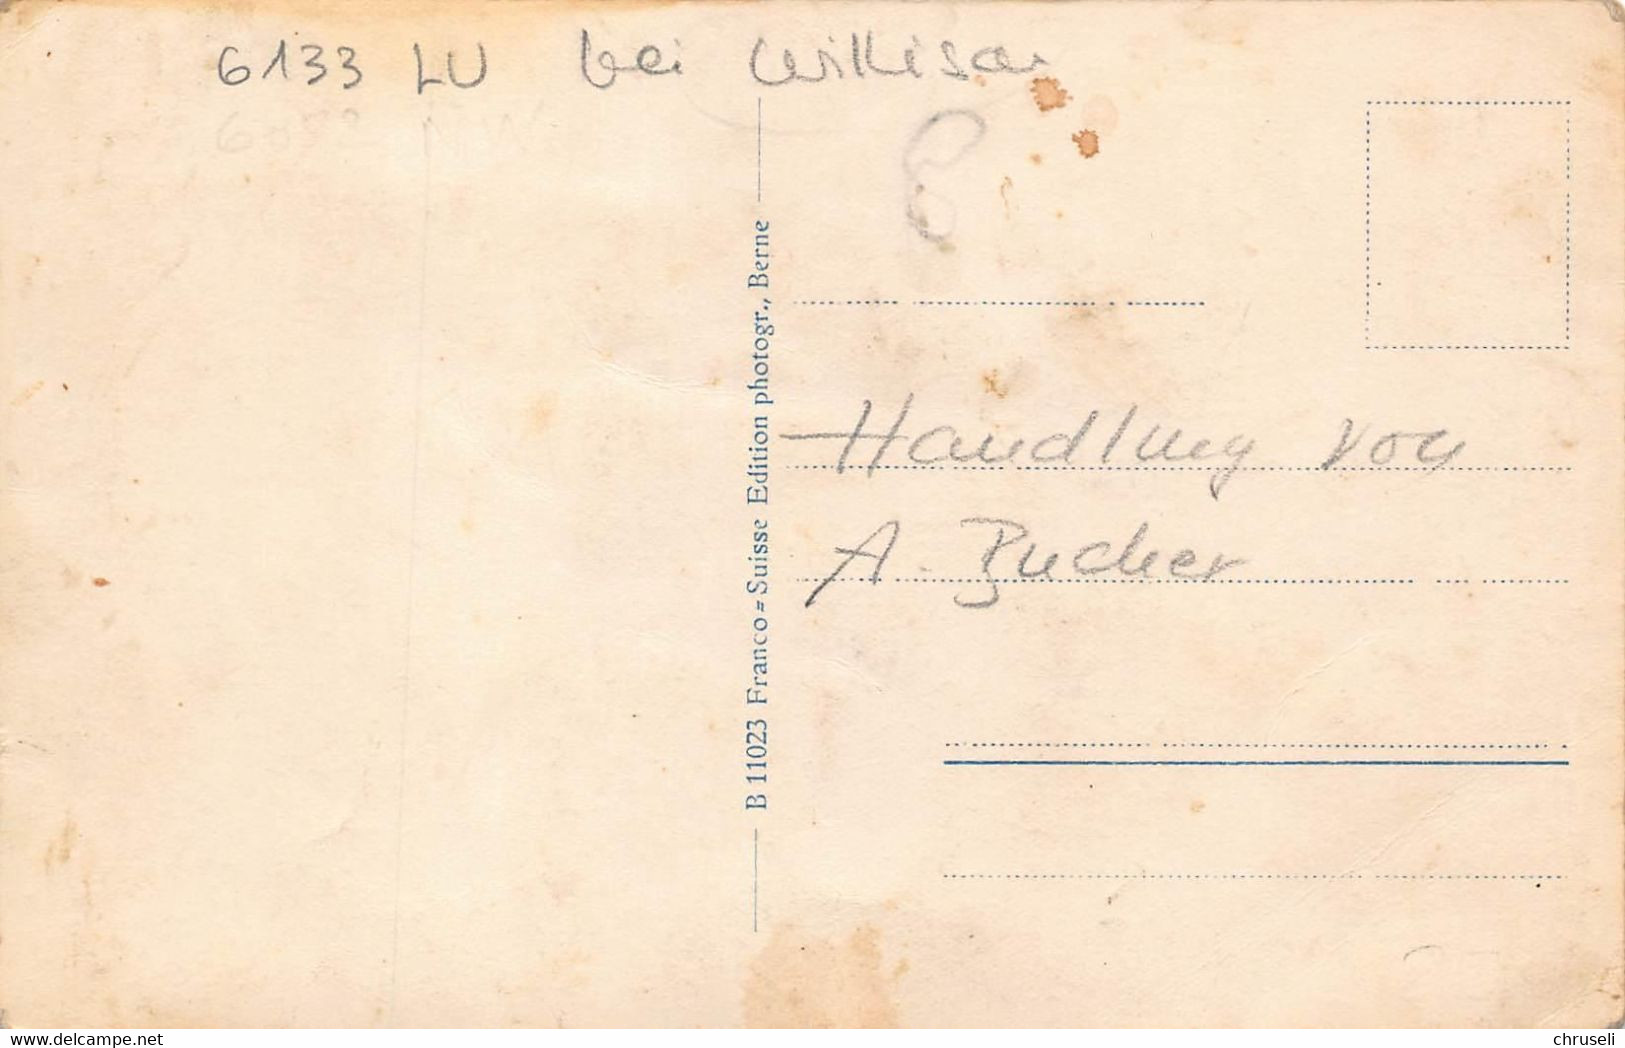 6133 LU bei Willisau
B 11023 Franco=Suisse Edition photogr., Berne
Handlung von
A. Bucher
www.delcampe.net
chruseli